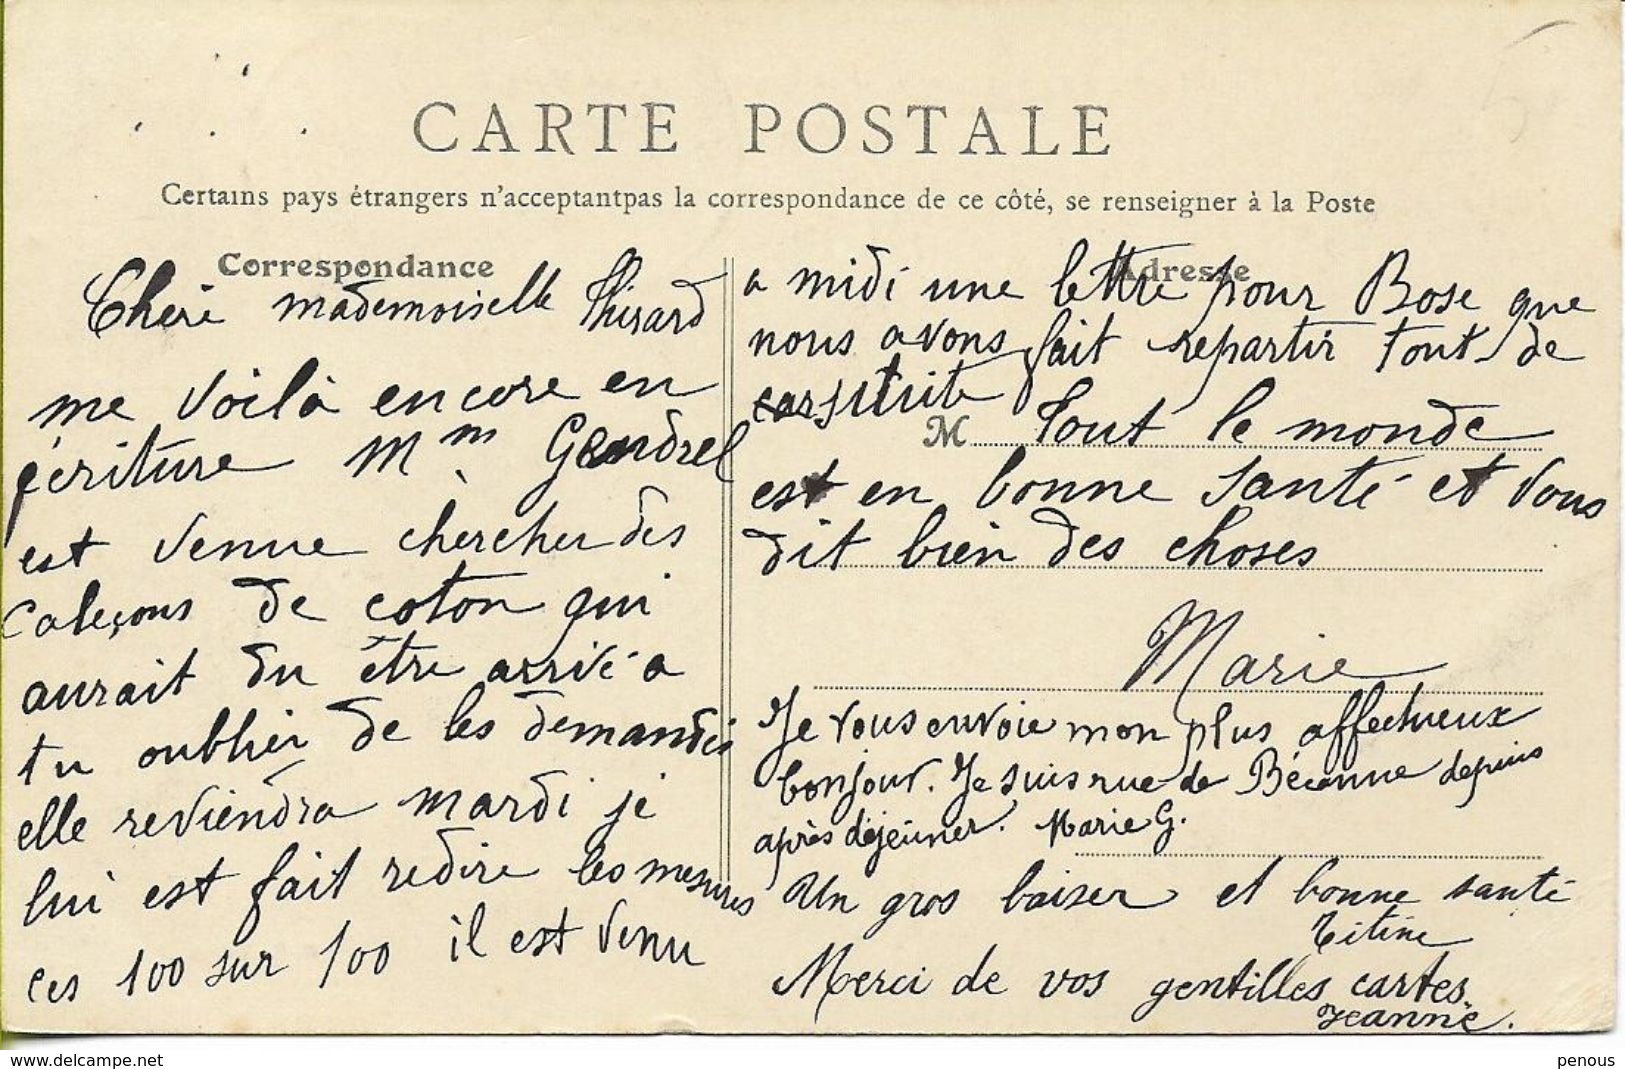 CARTE POSTALE
Certains pays étrangers n'acceptantpas la correspondance de ce côté, se renseigner à la Poste
Correspondance
Chère mademoiselle Thirard
me voilà encore en
écriture Mm Gendrel
est venue chercher des
caleçons de coton qui
aurait du être arrivé a
tu oublier de les demandés
elle reviendra mardi je
lui est fait redire les mesures
ces 100 sur 100 il est venu
Adresse
a midi une lettre pour Rose que
nous avons fait repartir tout de
suite
M Tout le monde
est en bonne santé et vous
dit bien des choses
Marie
Je vous envoie mon plus affectueux
bonjour. Je suis rue de Bécanne depuis
après déjeuner. Marie G.
Un gros baiser et bonne santé
Titine
Merci de vos gentilles cartes.
Jeanne.
www.delcampe.net
penous